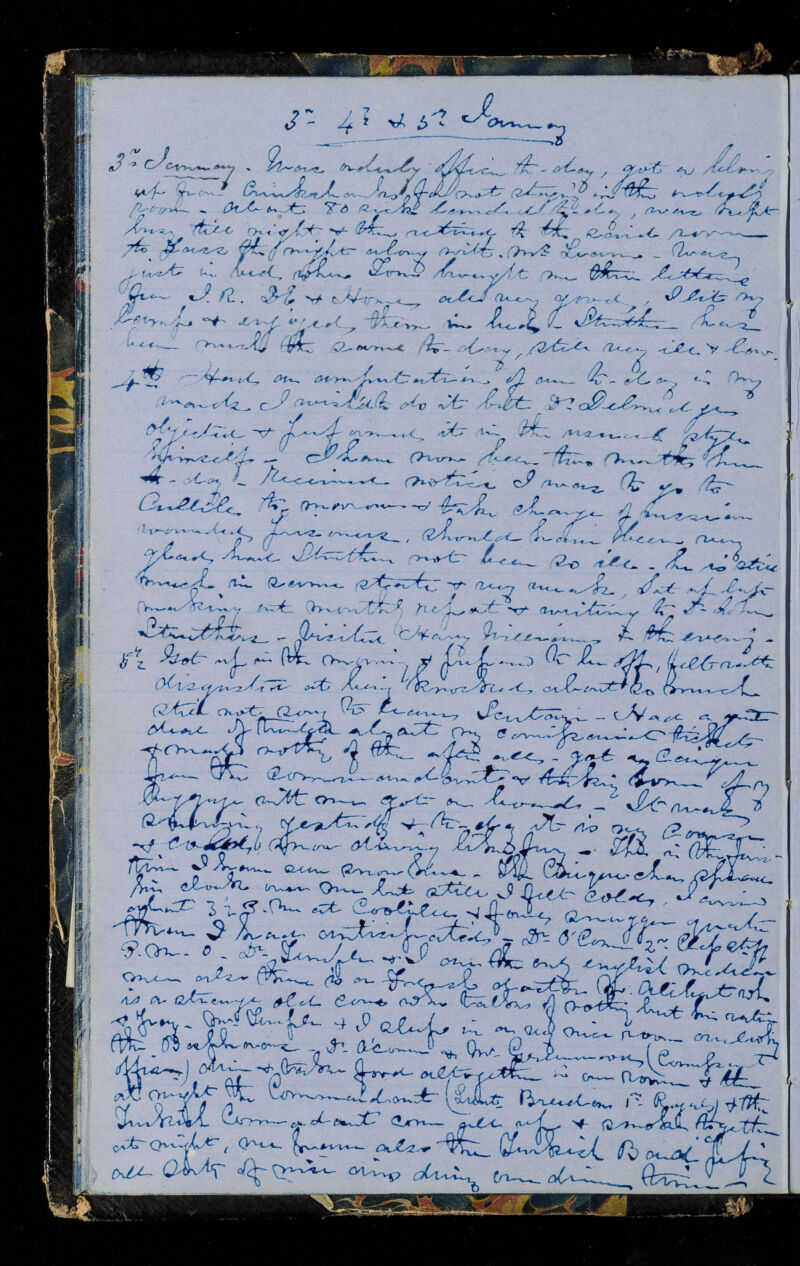 3rd 4th & 5th January
3rd January - Was orderly officer to-day, got a blowing
up from Cruikshanks for not staying in the orderly
room - about 80 sick landed to-day, was kept
busy till night & then retired to the said room
to pass the night along with Mr. - Was
just in bed when Tom brought me three letters
from J. R. & Home all very good, I lit my
lamp & enjoyed them in bed - Struthers has
been much the same to-day, still very ill & low.
4th Had an amputation of arm to-day in my
wards I wished to do it but Dr. Delmedge
objected & performed it in the usual style
himself - I have now been two months here
to-day - Received notice I was to go to
Cullile to-morrow & take charge of russian
wounded prisoners, should have been very
glad had Struthers not been so ill - he is still
much in same state & very weak, Sat up late
making out monthly report & writing to Dr. John
Struthers - Visited Harry Williams in the evening -
5th Got up in the morning & prepared to be off, felt rather
disgusted at being knocked about so much
still not sorry to leave Scutari - Had a great
deal of trouble about my comissariat tickets
& made nothing of them after all - got a Caique
from the commandant & taking some of my
luggage with me got on board - It was
snowing yesterday & to-day it is very coarse
& cold, snow driving like fury - This is the first
time I have seen snow here - The Caiquechee spread
his cloak over me but still I felt cold, I arrived
about 3½ P.m at Coolilee & found snugger quarters
than I had anticipated - Dr. O'Connor 2nd Class staff
P.M.O. Dr. Temple & I are the only english medical
men also there is a French Mr. who
is a strange old cove who talks of nothing but his
& - Mr. Temple & I sleep in a very nice room overlooking
the Bosphorous - Dr. O'Connor & Mr. (Comissariat
officer) dine & take food altogether in our room & then
at night the Commandant (Lieut. 1st Royals) & the
Turkish Commandant come all up & smoke together
at night, we have also the Turkish Band playing
all sorts of nice airs during our dinner time -